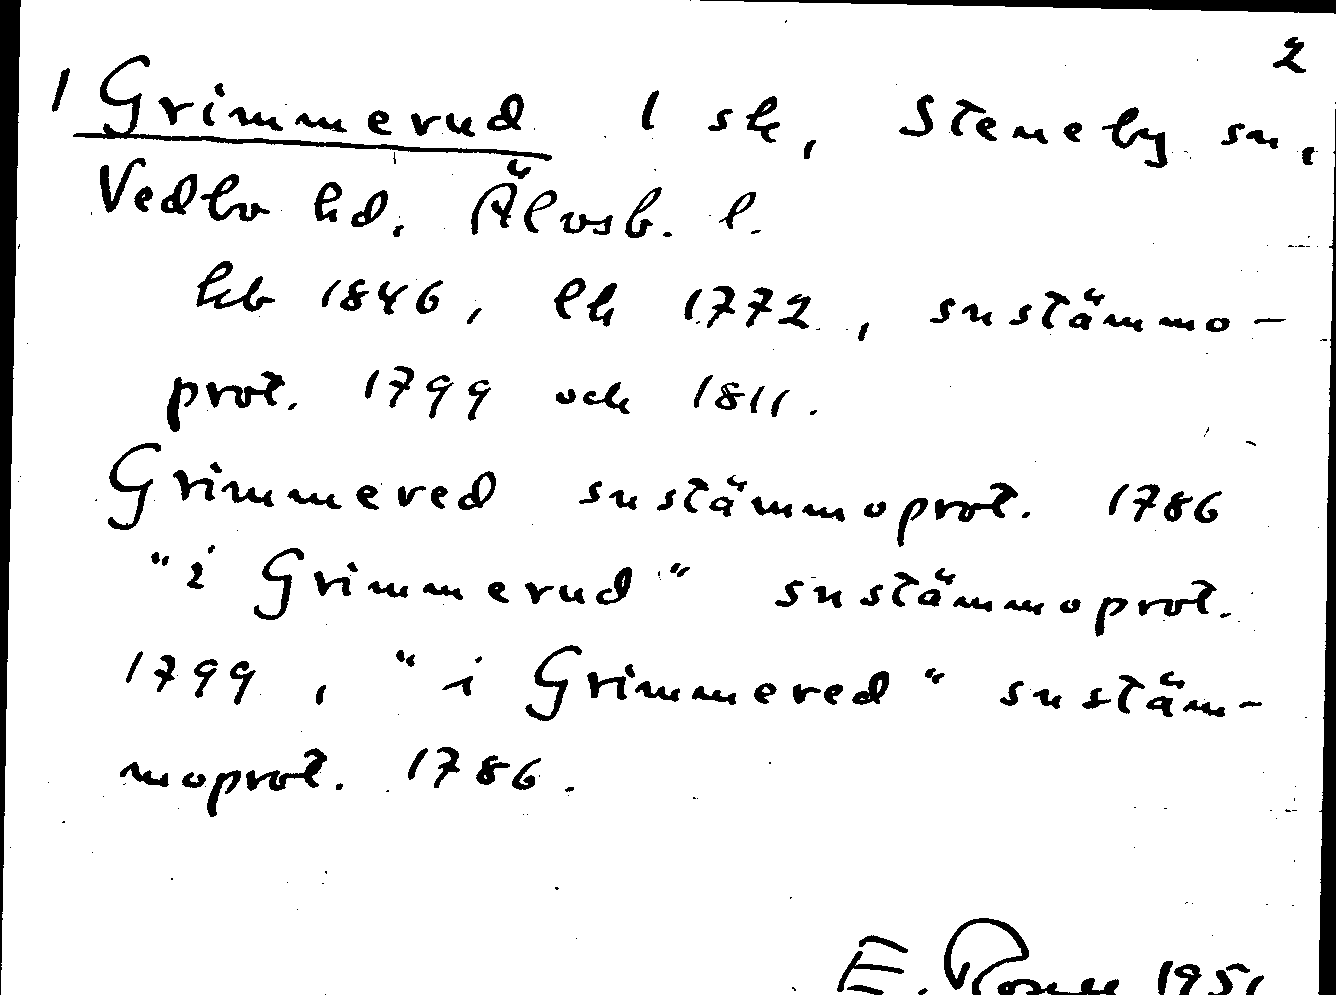 2
1 Grimmerud 1 sk, Steneby sn,
Vedbo hd, Älvsb. l.
kb 1846, lk 1772, snstämmo-
prot. 1799 och 1811.
Grimmered snstämmoprot. 1786
"i Grimmerud" snstämmoprot.
1799, "i Grimmered" snstäm-
moprot. 1786.
E. 1951